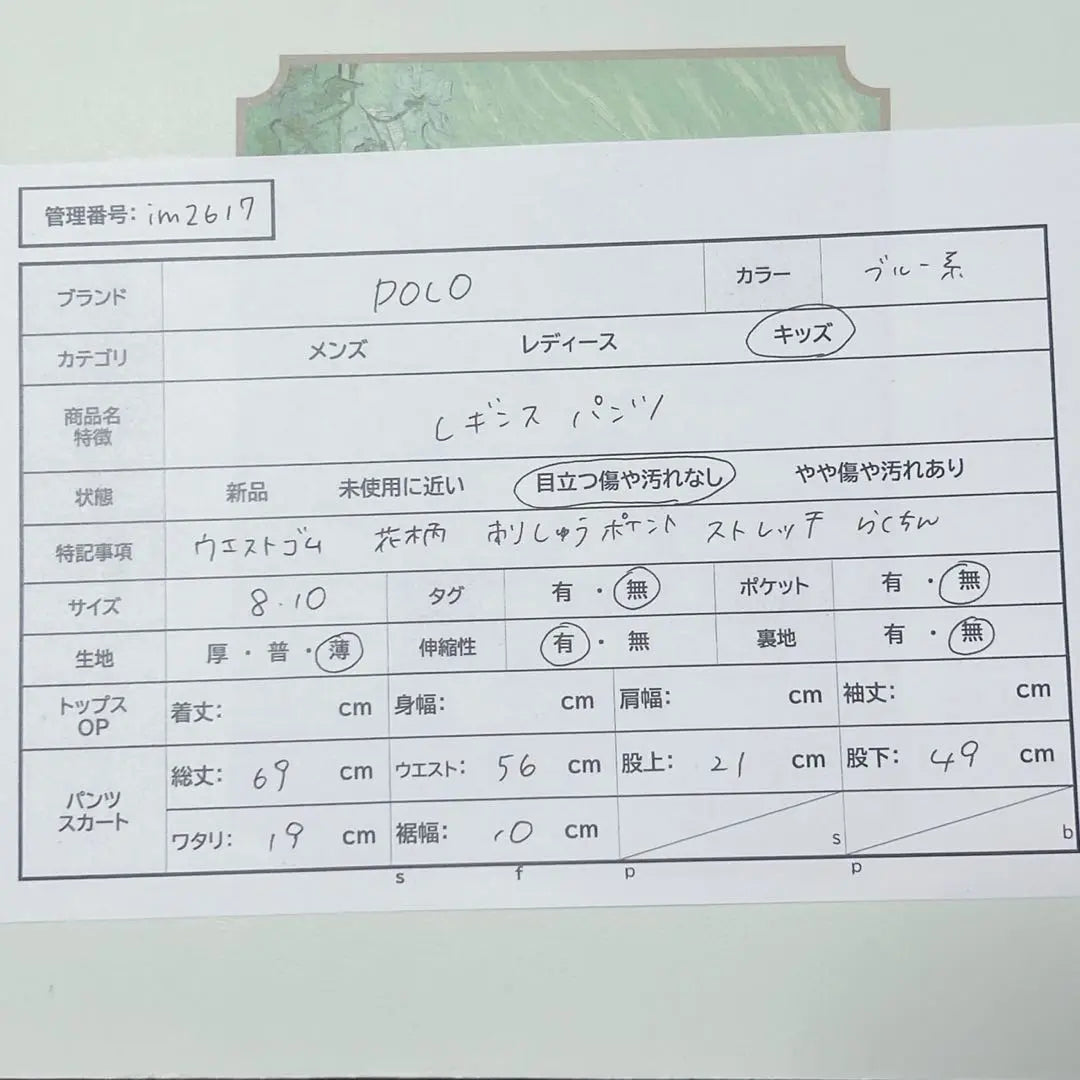 管理番号: im2617
ブランド POLO カラー ブルー系
カテゴリ メンズ レディース キッズ
商品名
特徴
レギンス パンツ
状態 新品 未使用に近い 目立つ傷や汚れなし やや傷や汚れあり
特記事項 ウエストゴム 花柄 刺しゅうポケット ストレッチ らくちん
サイズ 8.10 タグ 有・無 ポケット 有・無
生地 厚・普・薄 伸縮性 有・無 裏地 有・無
トップス
OP
着丈: cm 身幅: cm 肩幅: cm 袖丈: cm
パンツ
スカート
総丈: 69 cm ウエスト: 56 cm 股上: 21 cm 股下: 49 cm
ワタリ: 19 cm 裾幅: 10 cm s b
s f p p